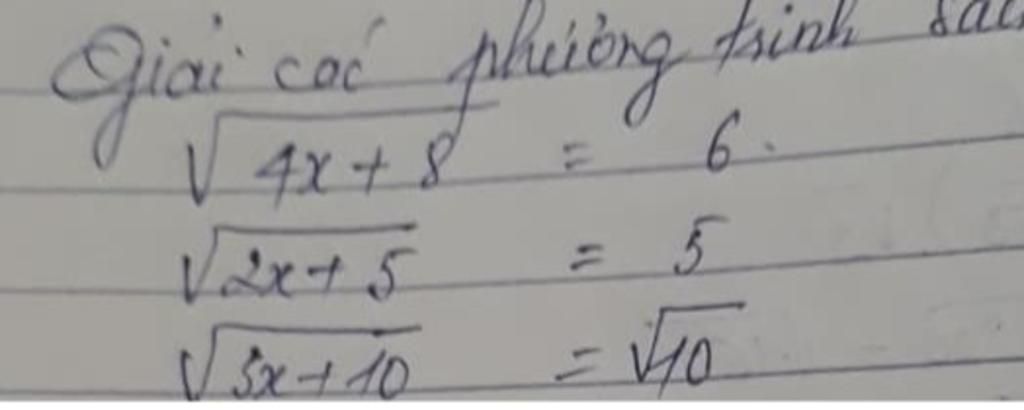 Giải các phương trình sau
√4x + 8 = 6.
√2x + 5 = 5
√3x + 10 = √10